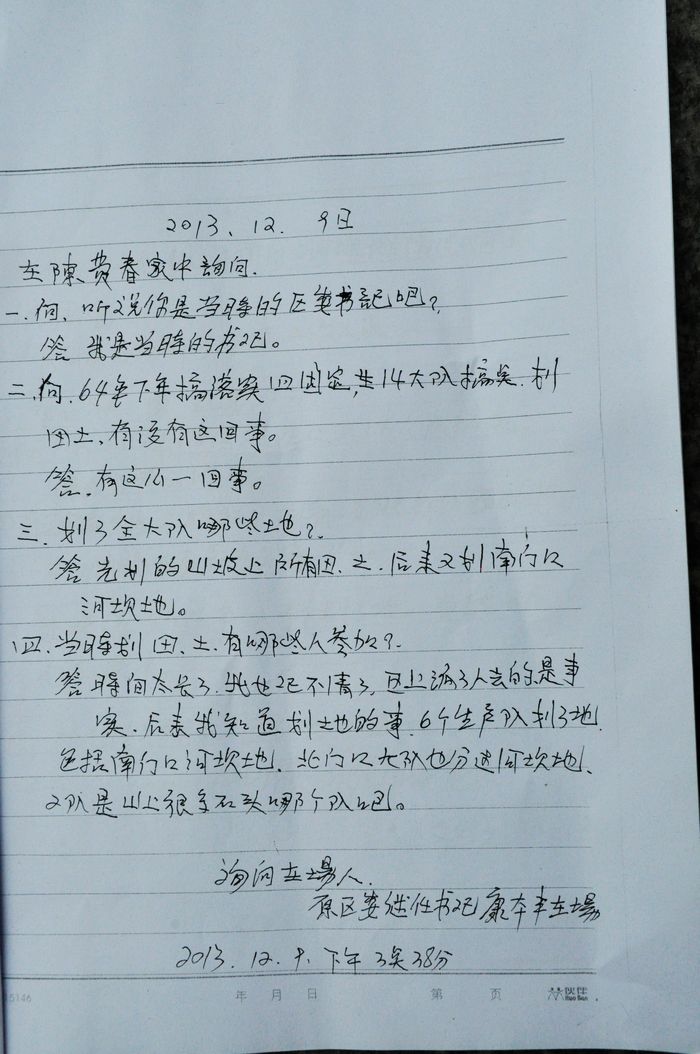 2013、12. 9日
在陳贵春家中詢问.
一.问、听说你是当時的区委书记吧?
答 我是当時的书记。
二.问.64年下年搞落实四固定,生14大队搞点.划
田土、有没有这回事。
答.有这么一回事。
三.划了全大队哪些土地?
答 先划的山坡上所有田.土.后来又划南门口
河坎地。
四.当時划田、土.有哪些人参加?
答 時间太长了.我也记不清了,区上派了人去的是事
实.后来我知道划土地的事.6个生产队划了地.
包括南门口河坎地、北门口大队也分进河坎地、
2队是山上很多石头哪个队吧。
询问在場人.
原区委继任书记康本丰在場
2013.12.9.下午3点38分
15146 年 月 日 第 页 伙伴
Huo Ban